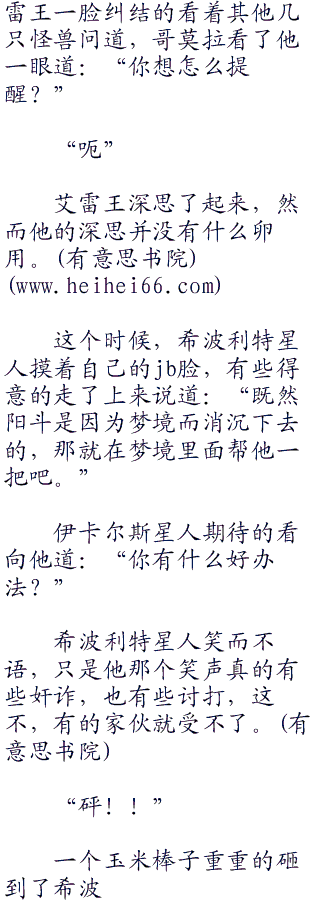 雷王一脸纠结的看着其他几
只怪兽问道，哥莫拉看了他
一眼道：“你想怎么提
醒？”
“呃”
艾雷王深思了起来，然
而他的深思并没有什么卵
用。(有意思书院)
(www.heihei66.com)
这个时候，希波利特星
人摸着自己的jb脸，有些得
意的走了上来说道：“既然
阳斗是因为梦境而消沉下去
的，那就在梦境里面帮他一
把吧。”
伊卡尔斯星人期待的看
向他道：“你有什么好办
法？”
希波利特星人笑而不
语，只是他那个笑声真的有
些奸诈，也有些讨打，这
不，有的家伙就受不了。(有
意思书院)
“砰！！”
一个玉米棒子重重的砸
到了希波